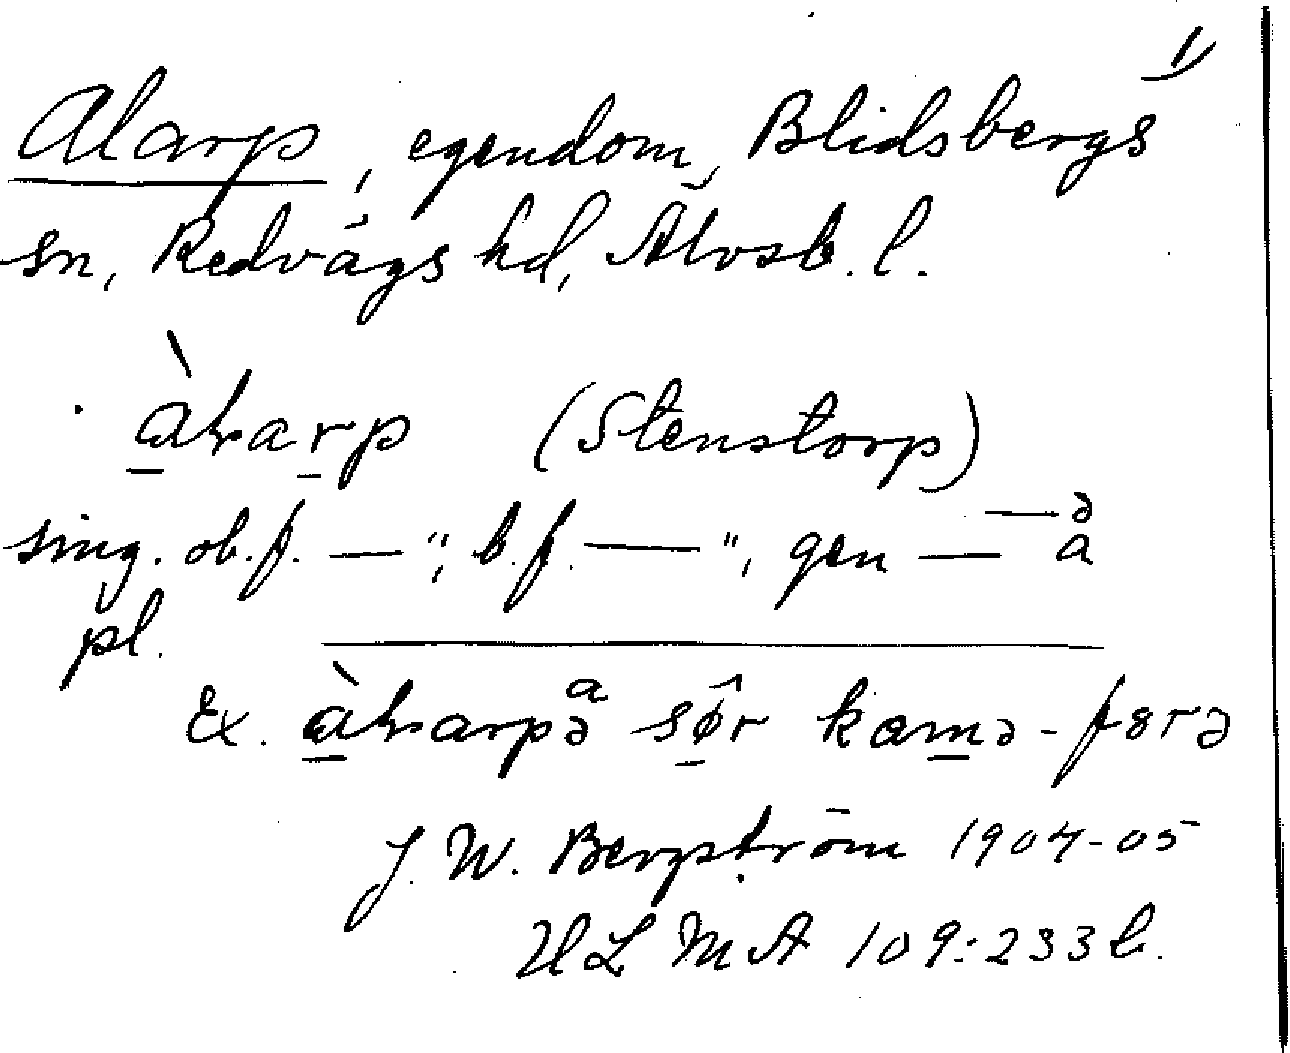 1)
Alarp, egendom, Blidsbergs
sn, Redvägs hd, Älvsb. l.
àlrarp (Stenstorp)
sing. ob.f. — ", b.f. — ", gen — ə
a
pl.
Ex. àlrarpə
a
sør kamə-fɞrə
J. W. Bergström 1904-05
ULMA 109:233 b.